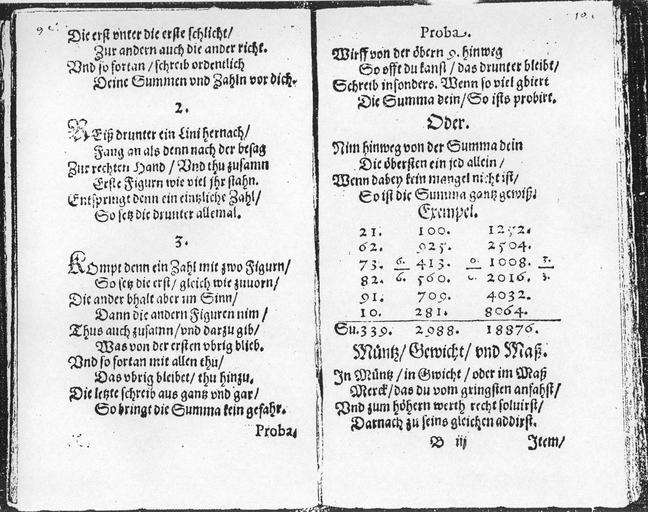 Die erst vnter die erste schlicht/
Zur andern auch die ander richt.
Vnd so fortan/ schreib ordenlich
Deine Summen vnd Zahln vor dich.
2.
REiß drunter ein Lini hernach/
Fang an als denn nach der besag
Zur rechten Hand/ Vnd thu zusamn
Erste Figurn wie viel jhr stahn.
Entspringt denn ein eintzliche Zahl/
So setz die drunter allemal.
3.
KOmpt denn ein Zahl mit zwo Figurn/
So setz die erst/ gleich wie zuuorn/
Die ander bhalt aber im Sinn/
Dann die andern Figuren nim/
Thus auch zusamn/ vnd darzu gib/
Was von der ersten vbrig blieb.
Vnd so fortan mit allen thu/
Das vbrig bleibet/ thu hinzu.
Die letzte schreib aus gantz vnd gar/
So bringt die Summa kein gefahr.
Proba.
Proba.
Wirff von der öbern 9. hinweg
So offt du kanst/ das drunter bleibt/
Schreib insonders. Wenn so viel gbiert
Die Summa dein/ So ists probirt.
Oder.
Nim hinweg von der Summa dein
Die öbersten ein jed allein/
Wenn dabey kein mangel nicht ist/
So ist die Summa gantz gewiß.
Exempel.
21. 100. 1252.
62. 925. 2504.
73. 6. 413. 0. 1008. 3.
82. 6. 560. 0. 2016. 3.
91. 709. 4032.
10. 281. 8064.
Su. 339. 2988. 18876.
Müntz/ Gewicht/ vnd Maß.
In Müntz/ in Gwicht/ oder im Maß
Merck/ das du vom gringsten anfahst/
Vnd zum höhern werth recht soluirst/
Darnach zu seins gleichen addirst.
B iij Item/